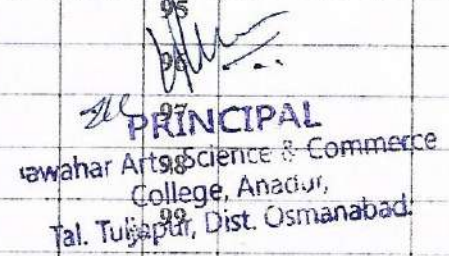 95
96
97
PRINCIPAL
Jawahar Arts, Science & Commerce
98
College, Anadur,
99
Tal. Tuljapur, Dist. Osmanabad.